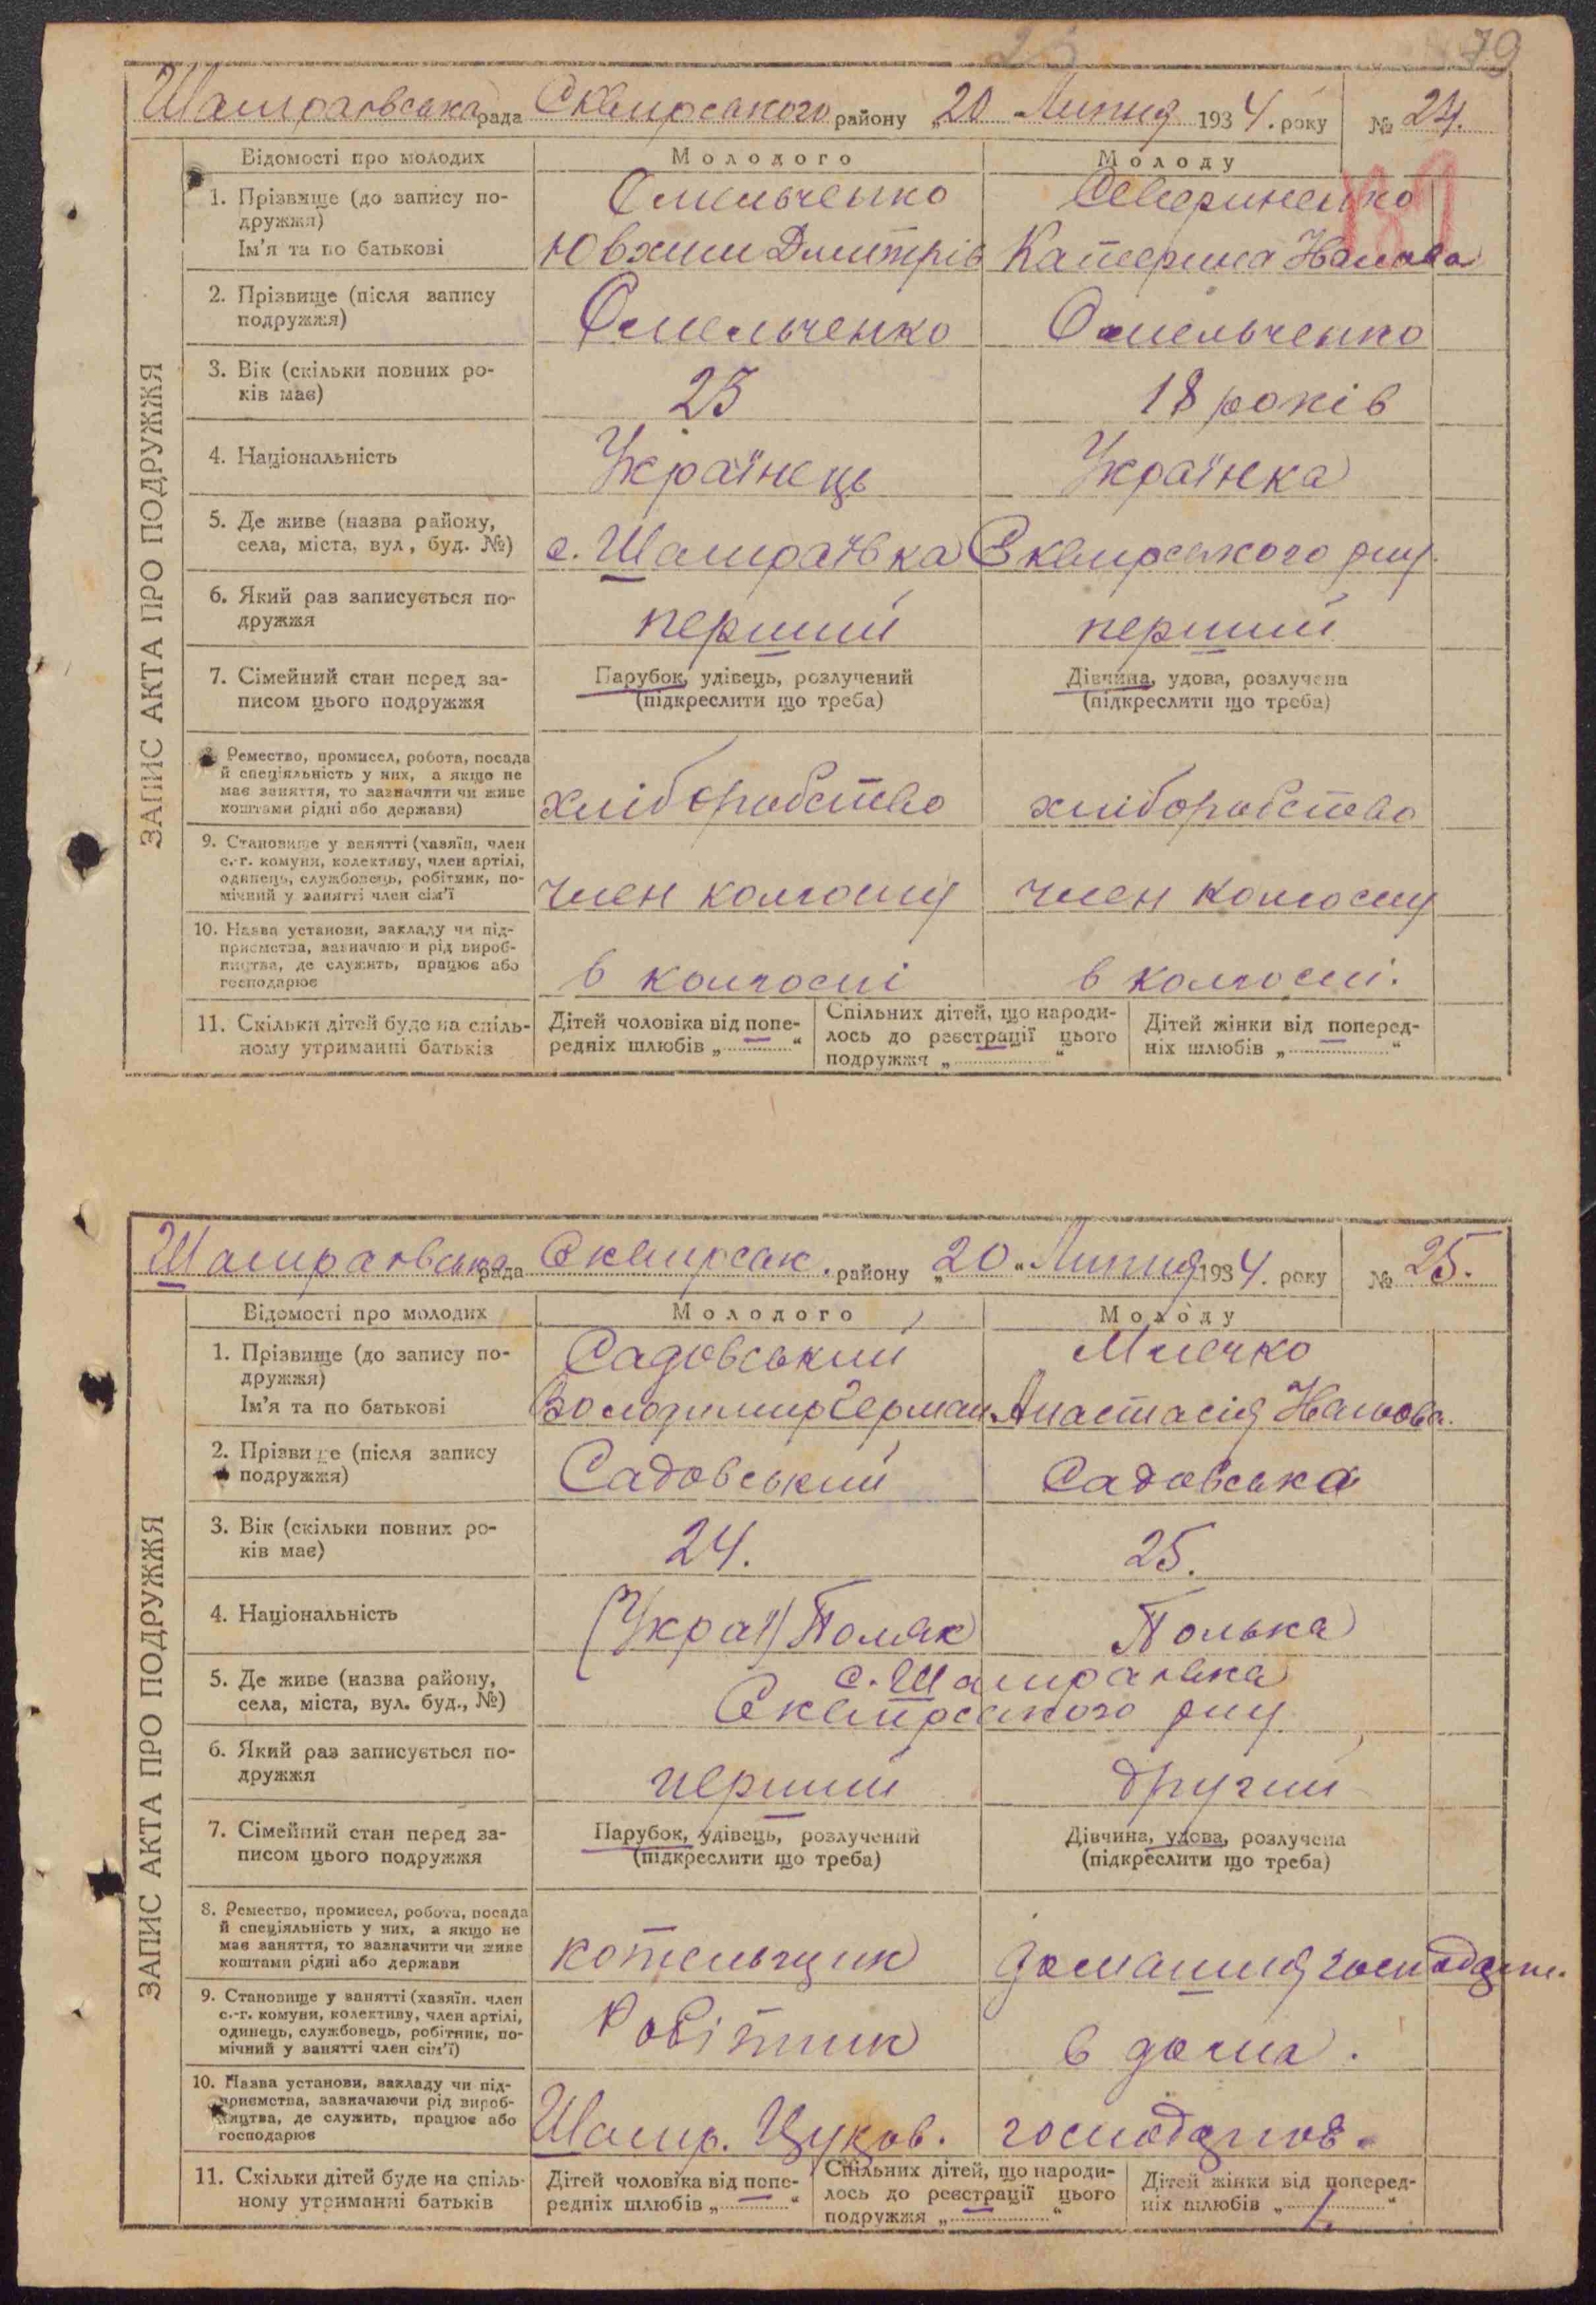 79
Шамраївська рада Сквирського району „20 Липня 1934. року № 24.
ЗАПИС АКТА ПРО ПОДРУЖЖЯ
Відомості про молодих Молодого Молоду
1. Прізвище (до запису подружжя) Омельченко Севериненко
Ім'я та по батькові Ювхим Дмитрів Катерина Іванова
2. Прізвище (після запису
подружжя) Омельченко Омельченко
3. Вік (скільки повних ро-
ків має) 23 18 років
4. Національність Українець Українка
5. Де живе (назва району,
села, міста, вул, буд. №) с. Шамраївка Сквирського р-ну
6. Який раз записується по-
дружжя перший перший
7. Сімейний стан перед за- Парубок, удівець, розлучений Дівчина, удова, розлучена
писом цього подружжя (підкреслити що треба) (підкреслити що треба)
Ремество, промисел, робота, посада
й спеціяльність у них, а якщо не
має заняття, то зазначити чи живе
коштами рідні або держави) хліборобство хліборобство
9. Становище у занятті (хазяїн, член
с.-г. комуни, колективу, член артілі,
одинець, службовець, робітник, по-
мічний у занятті член сім'ї член колгоспу член колгоспу
10. Назва установи, закладу чи під-
приємства, зазначаючи рід вироб-
ництва, де служить, працює або
господарює в колгоспі в колгоспі.
11. Скільки дітей буде на спіль- Дітей чоловіка від попе- Спільних дітей, що народи- Дітей жінки від поперед-
ному утриманні батьків редніх шлюбів „ — “ лось до реєстрації цього ніх шлюбів „ — “
подружжя „ — “
Шамраївська рада Сквирськ. району „20“ Липня 1934. року № 25.
ЗАПИС АКТА ПРО ПОДРУЖЖЯ
Відомості про молодих Молодого Молоду
1. Прізвище (до запису по-
дружжя) Садовський
Ім'я та по батькові Володимир Герман. Анастасія Іванова.
2. Прізвище (після запису
подружжя) Садовський Садовська
3. Вік (скільки повних ро-
ків має) 24. 25.
4. Національність (Украї) Поляк Полька
5. Де живе (назва району, с. Шамраївка
села, міста, вул. буд., №) Сквирського р-ну
6. Який раз записується по-
дружжя перший другий
7. Сімейний стан перед за- Парубок, удівець, розлучений Дівчина, удова, розлучена
писом цього подружжя (підкреслити що треба) (підкреслити що треба)
8. Ремество, промисел, робота, посада
й спеціяльність у них, а якщо не
має заняття, то зазначити чи живе
коштами рідні або держави котельщик домашня господарк.
9. Становище у занятті (хазяїн. член
с.-г. комуни, колективу, член артілі,
одинець, службовець, робітник, по-
мічний у занятті член сім'ї) Робітник в дома.
10. Назва установи, закладу чи під-
приємства, зазначаючи рід вироб-
ництва, де служить, працює або
господарює Шамр. Цуков.
11. Скільки дітей буде на спіль- Дітей чоловіка від попе- Спільних дітей, що народи- Дітей жінки від поперед-
ному утриманні батьків редніх шлюбів „ — “ лось до реєстрації цього ніх шлюбів „ 1. “
подружжя „ — “